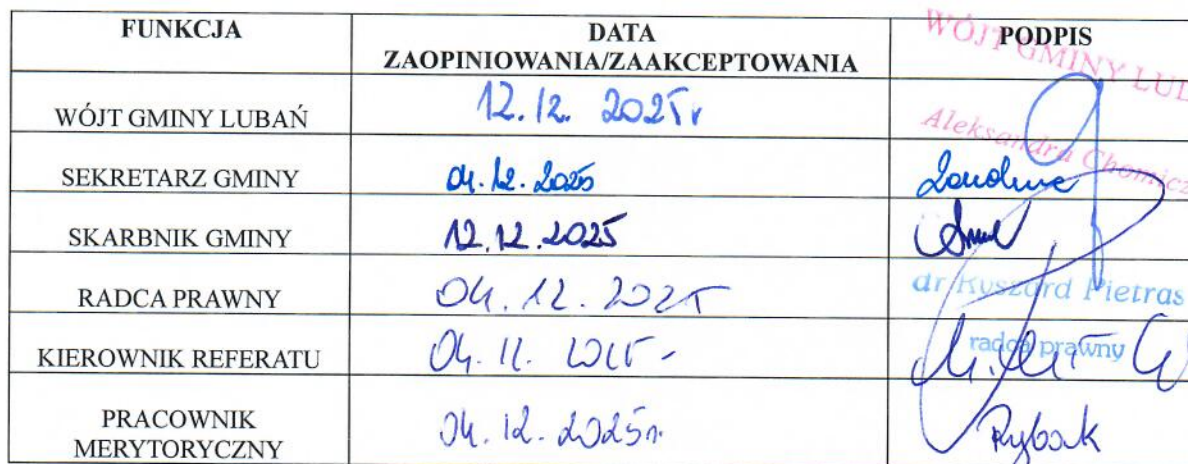 FUNKCJA DATA ZAOPINIOWANIA/ZAAKCEPTOWANIA PODPIS
WÓJT GMINY LUB
Aleksandra Chomicz
WÓJT GMINY LUBAŃ 12.12.2025r
SEKRETARZ GMINY 04.12.2025
SKARBNIK GMINY 12.12.2025
RADCA PRAWNY 04.12.2025
dr Ryszard Pietras
radca prawny
KIEROWNIK REFERATU
PRACOWNIK MERYTORYCZNY 04.12.2025r. Rybak